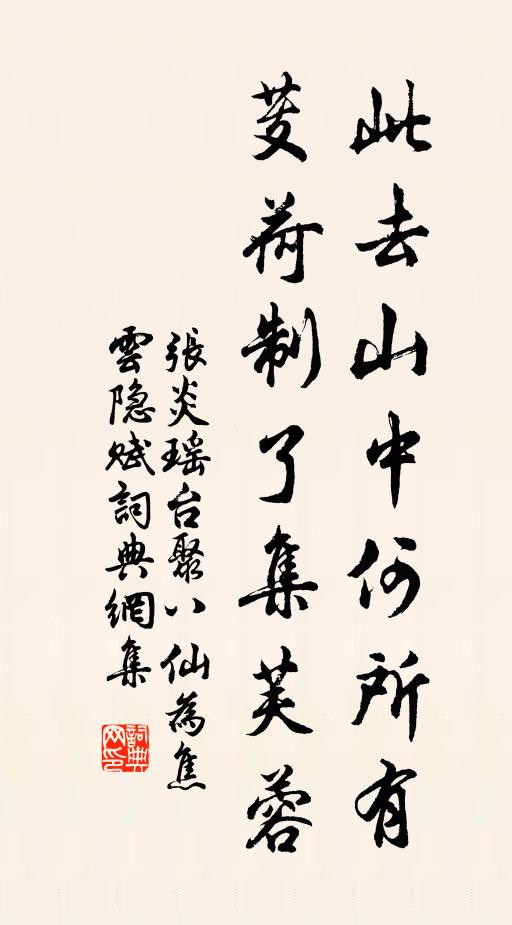 此去山中何所有
芰荷制了集芙蓉
張炎瑶台聚八仙為焦
雲隐赋詞典網集
詞典網印